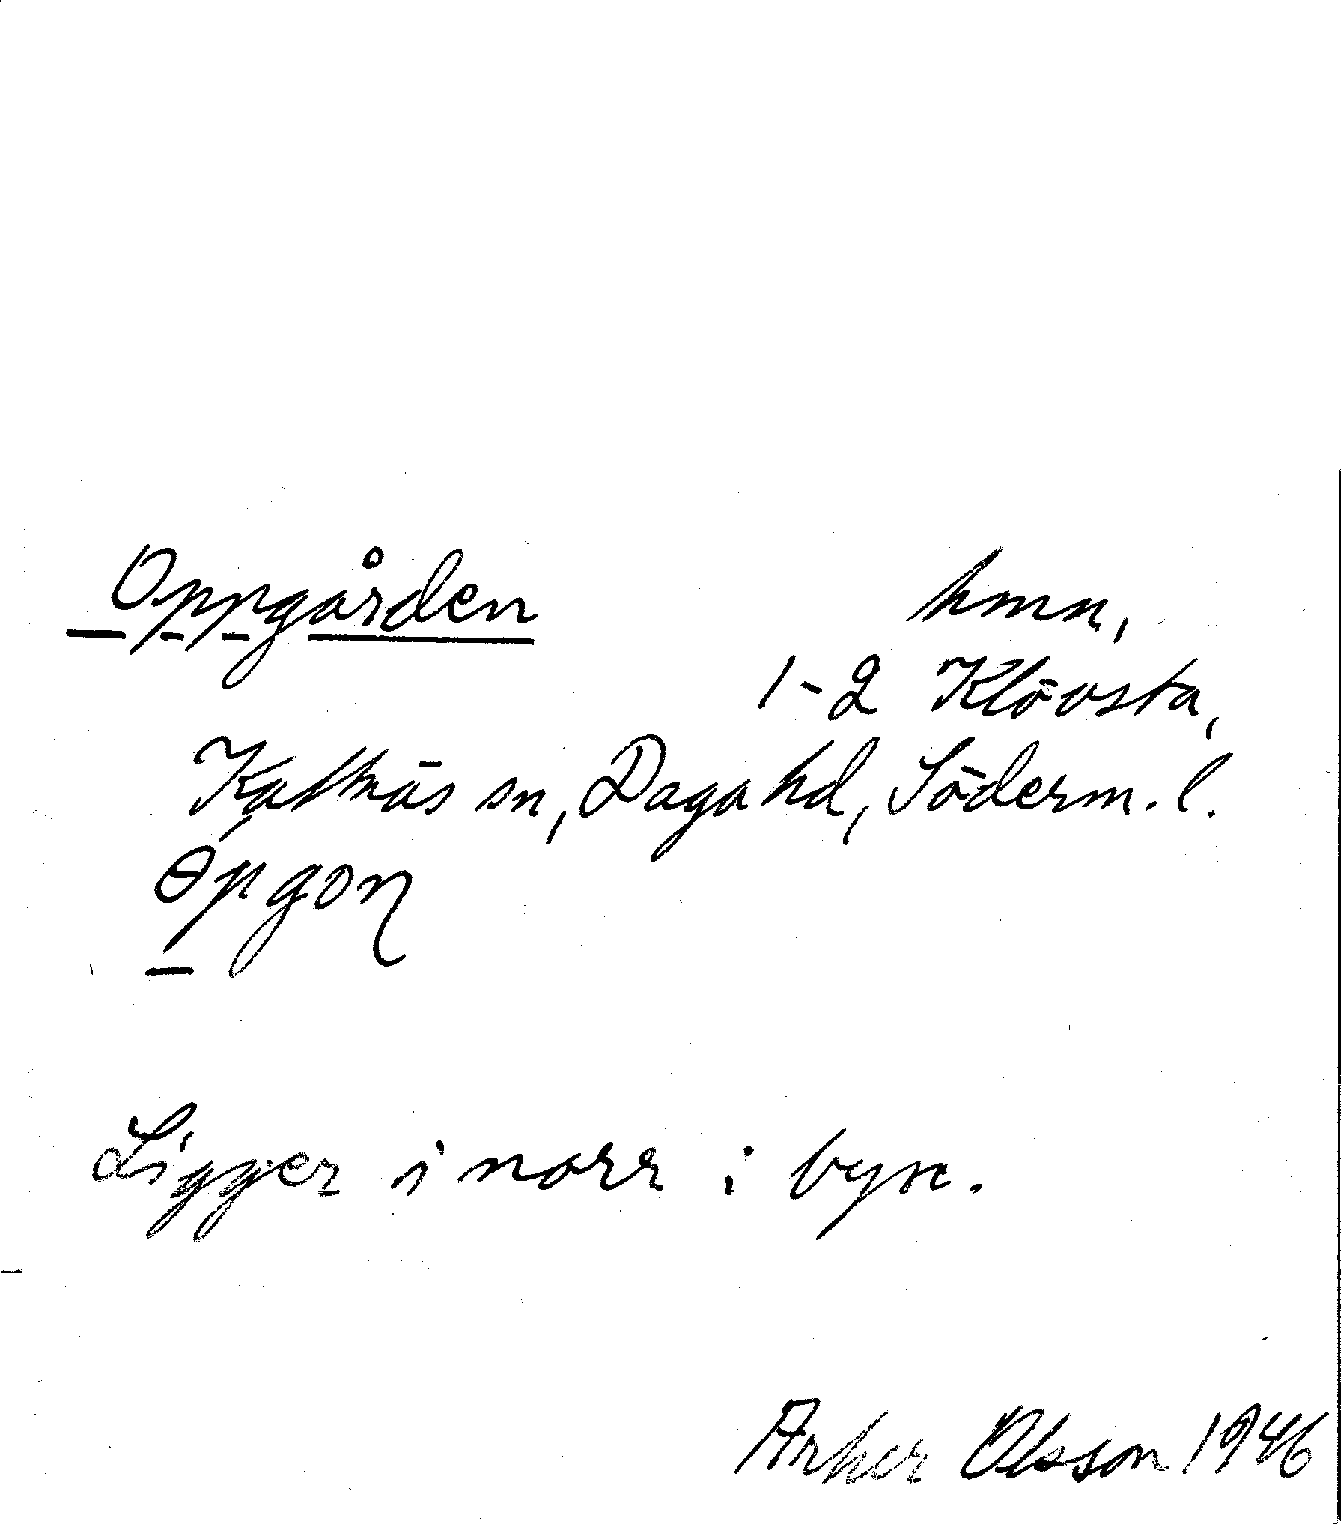 Oppgården hmn,
1-2 Klövsta,
Kattnäs sn, Daga hd, Söderm. l.
Ligger i norr i byn.
Olsson 1946